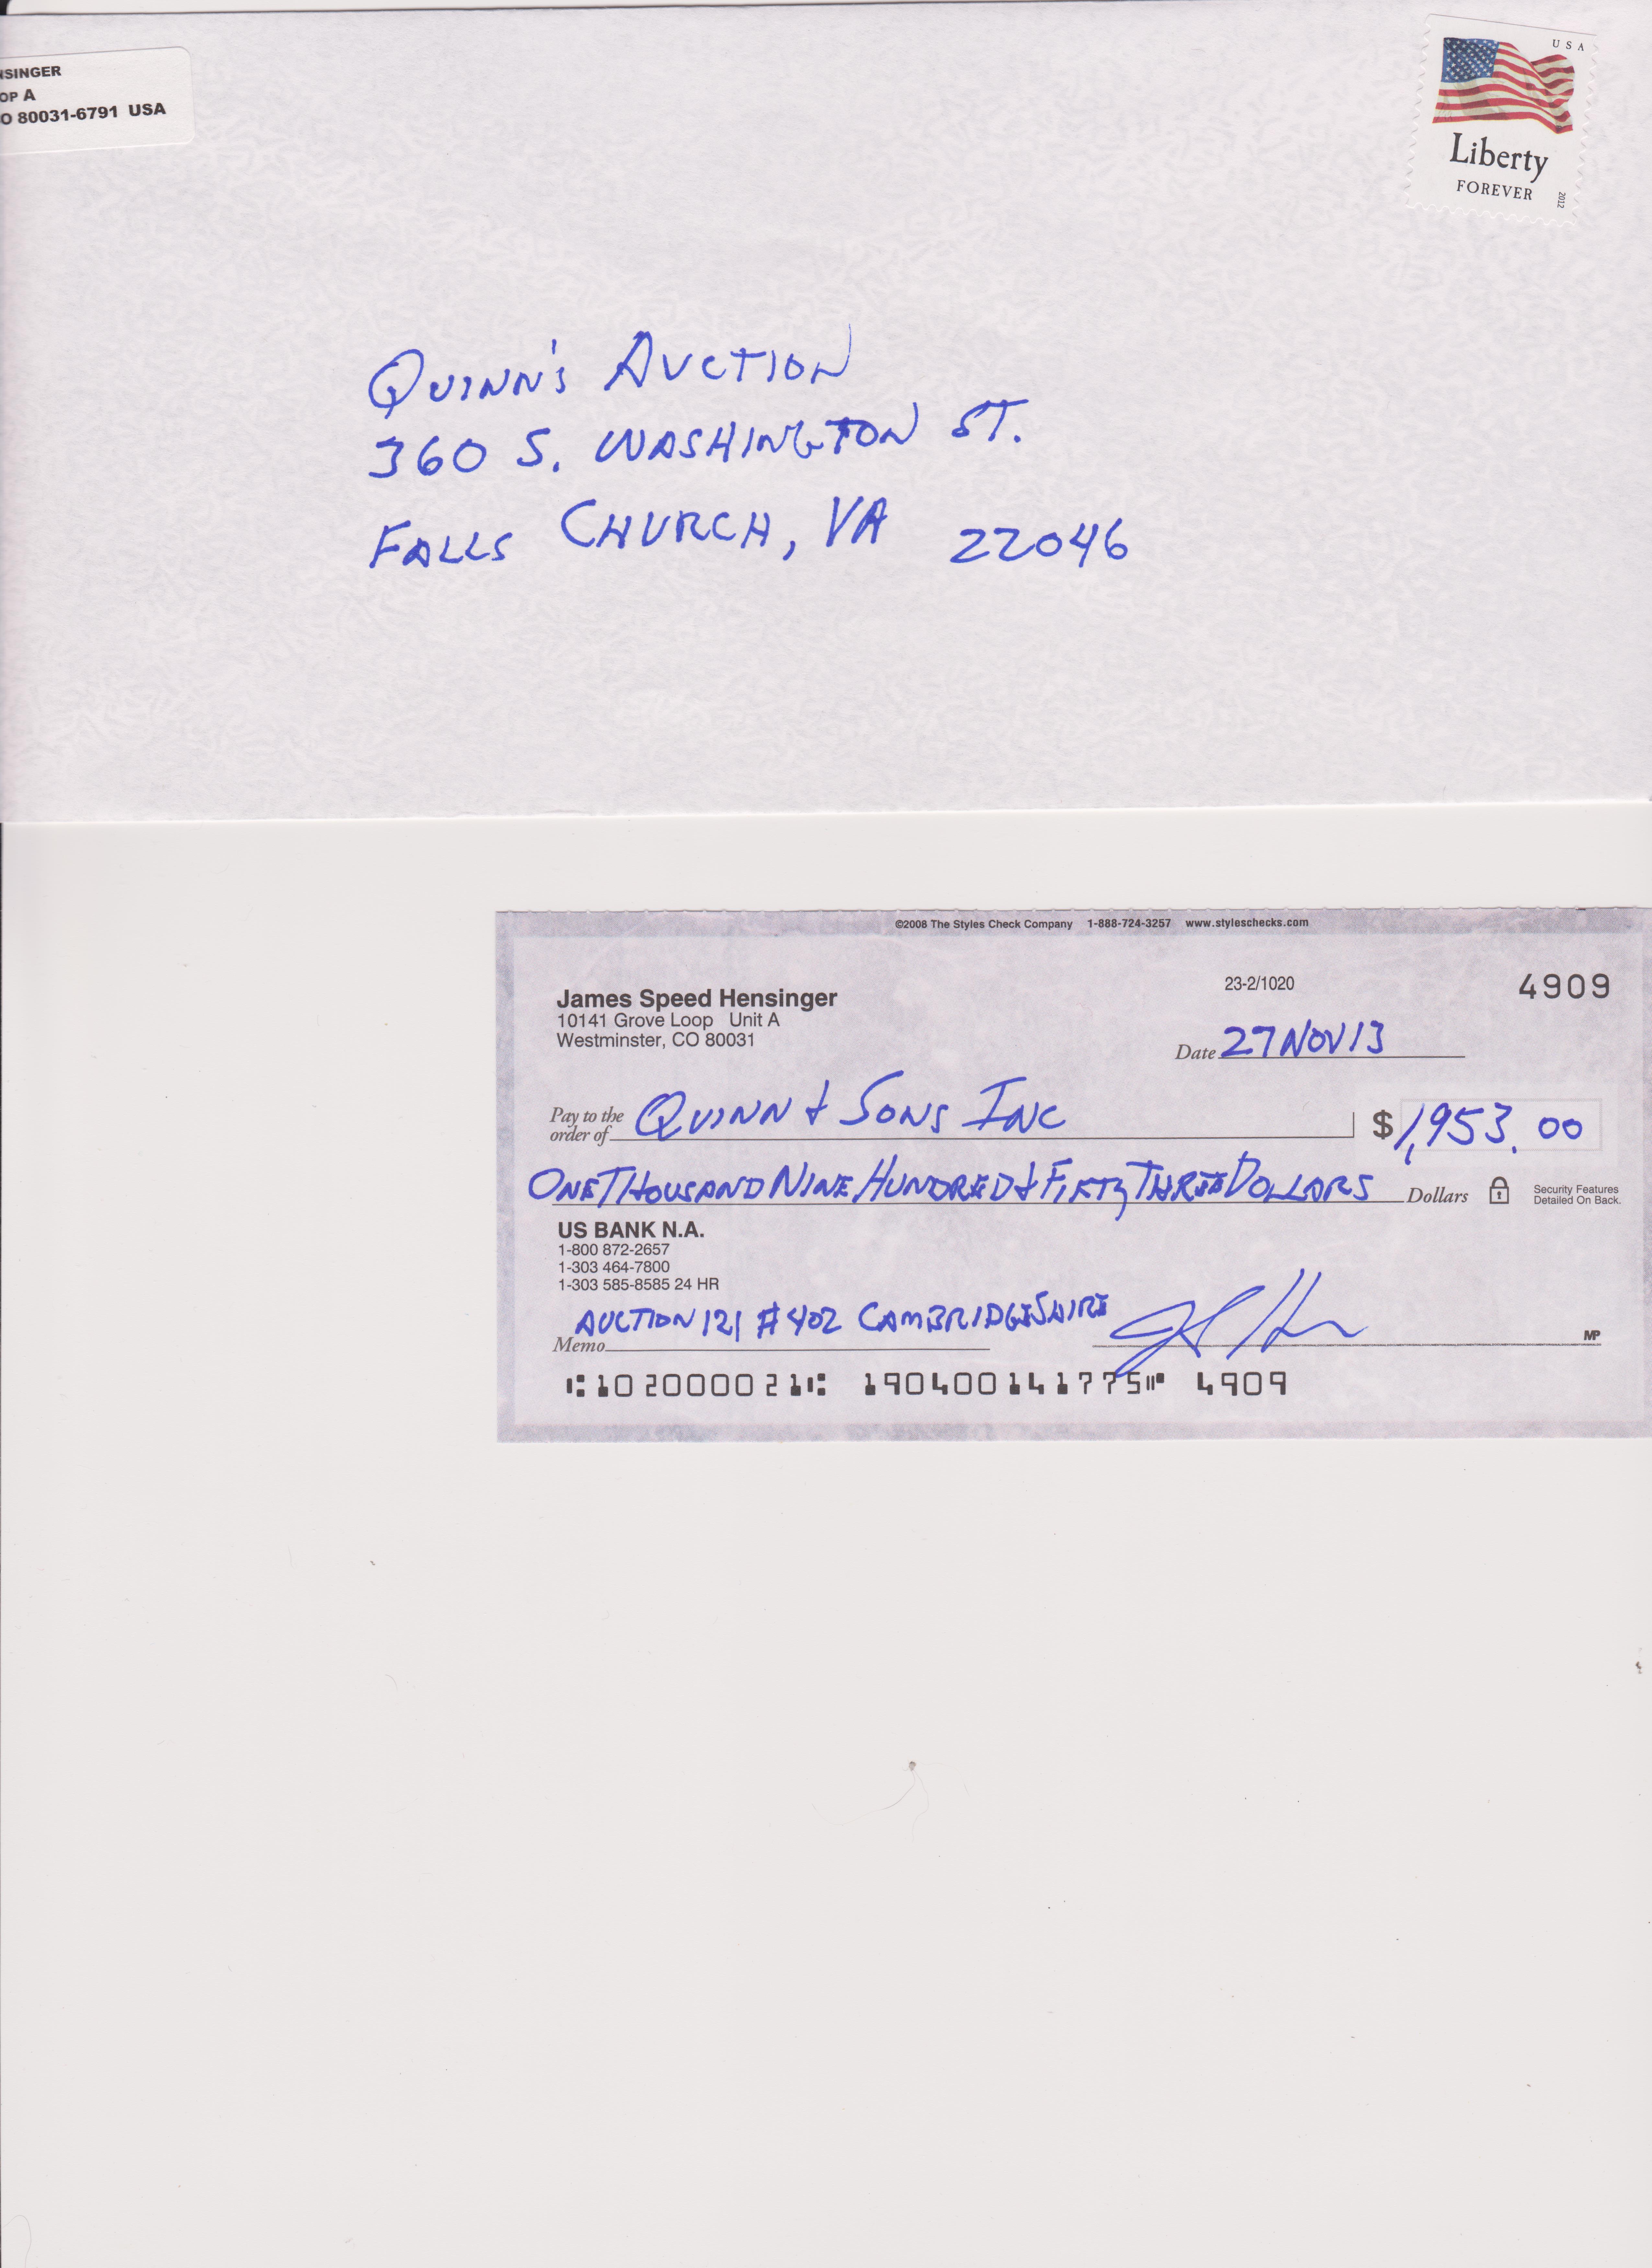 NSINGER
OP A
O 80031-6791 USA
USA
Liberty
FOREVER
2012
QUINN'S AUCTION
360 S. WASHINGTON ST.
FALLS CHURCH, VA 22046
©2008 The Styles Check Company 1-888-724-3257 www.styleschecks.com
James Speed Hensinger
10141 Grove Loop Unit A
Westminster, CO 80031
23-2/1020
4909
Date 27 NOV 13
Pay to the order of QUINN & SONS INC $ 1,953.00
ONE THOUSAND NINE HUNDRED & FIFTY THREE DOLLARS Dollars
Security Features
Detailed On Back.
US BANK N.A.
1-800 872-2657
1-303 464-7800
1-303 585-8585 24 HR
Memo AUCTION 121 #402 CAMBRIDGESHIRE
MP
⑆102000021⑆ 190400141775⑈ 4909